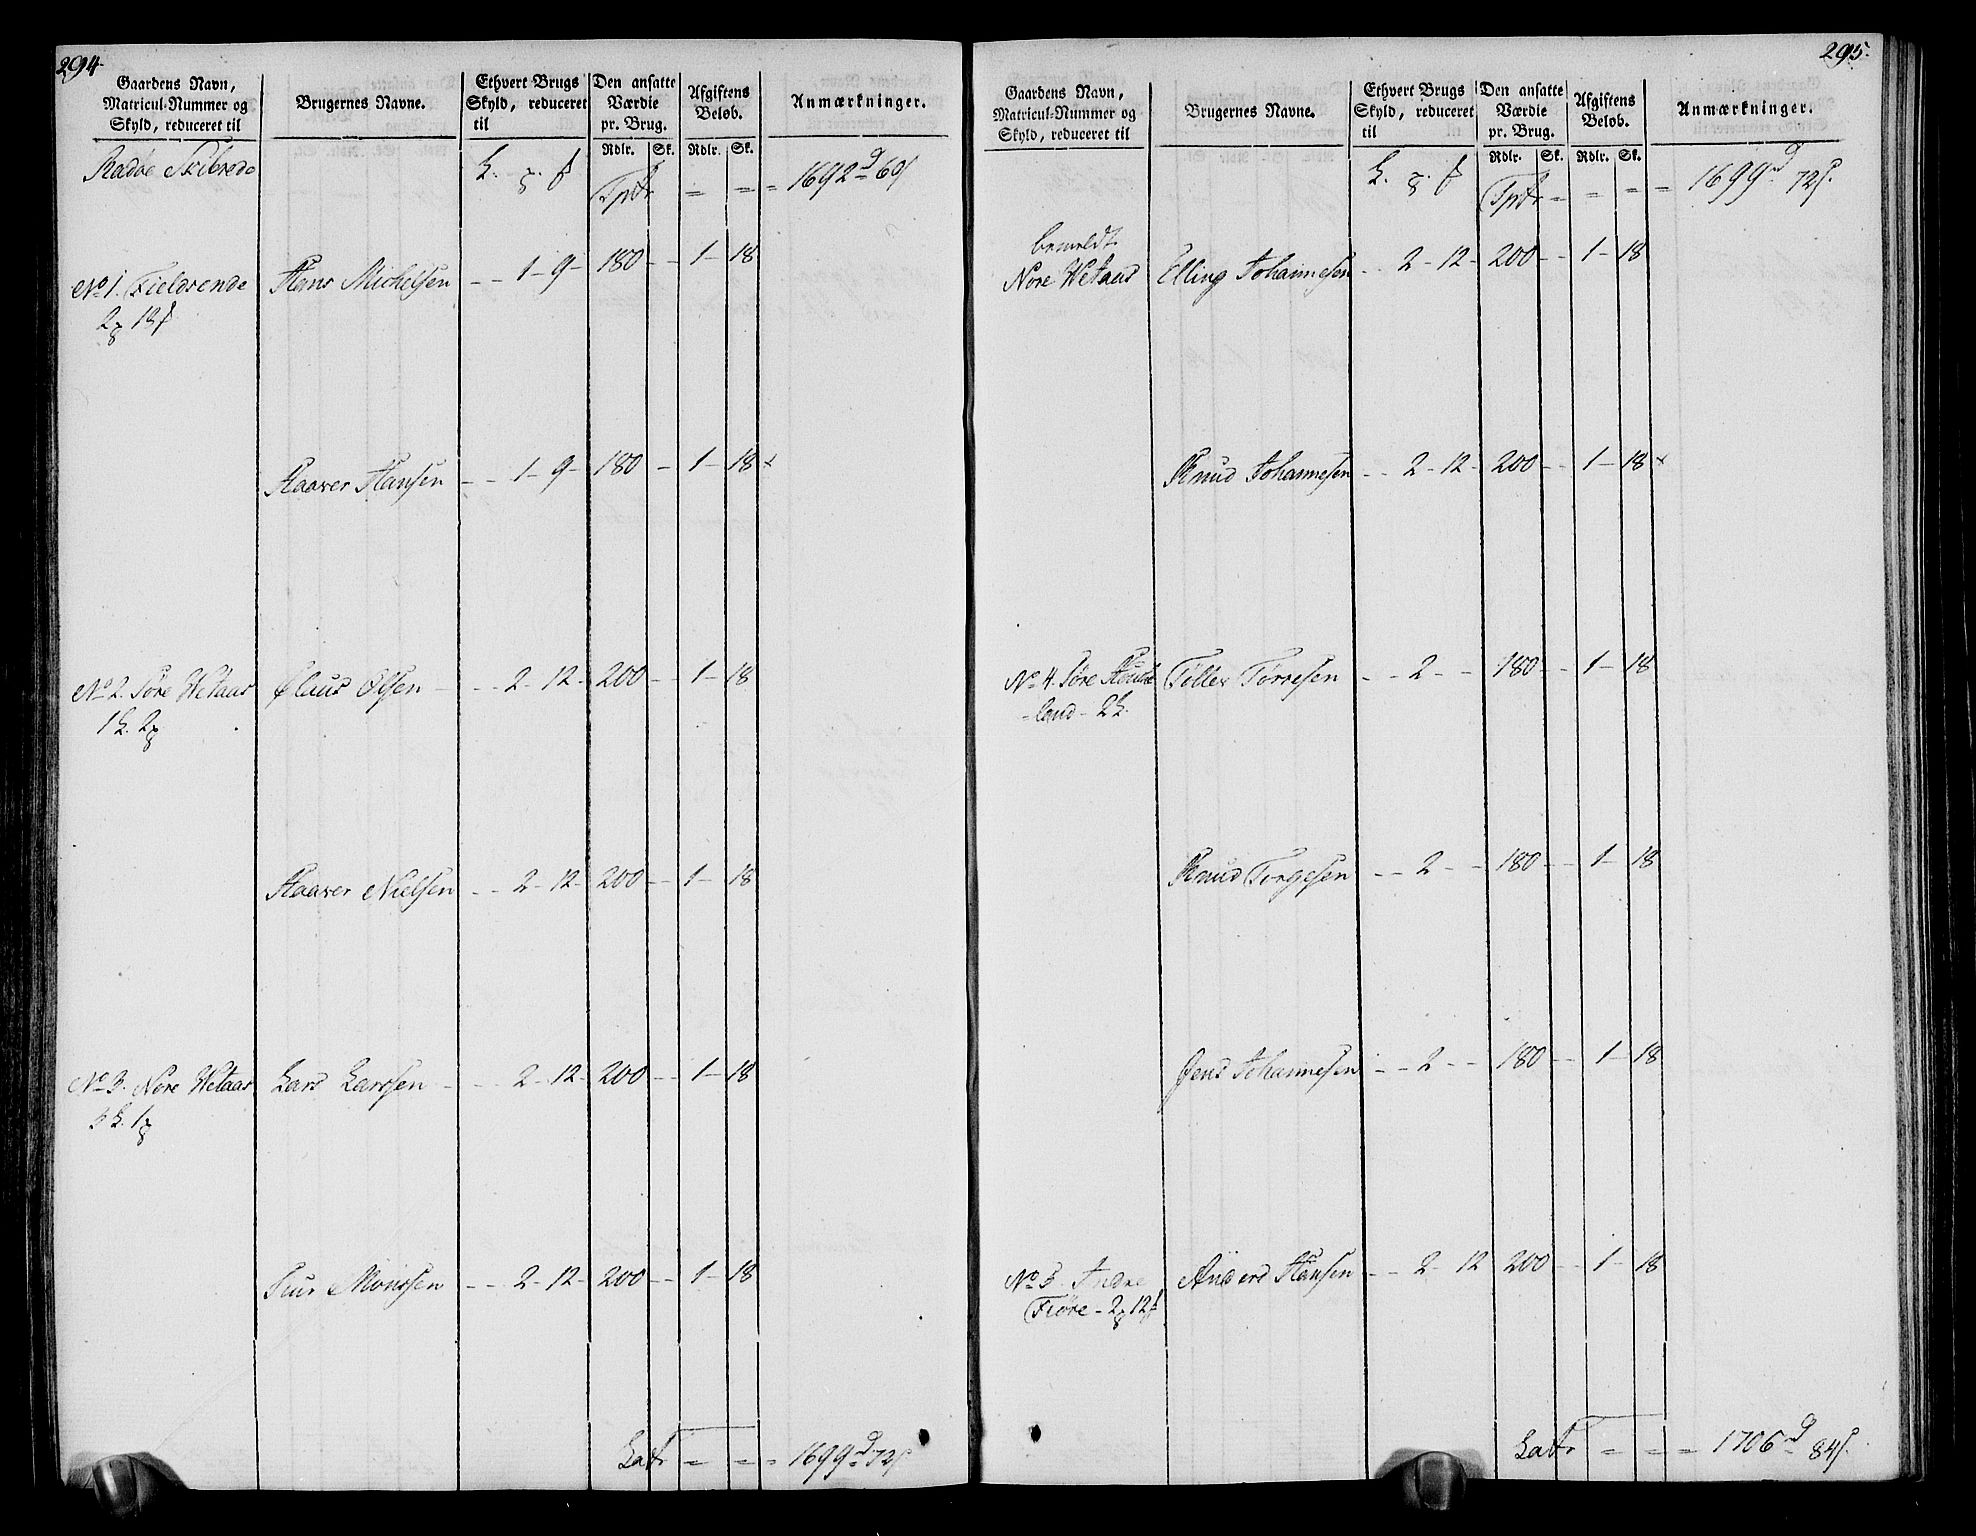 294.
Gaardens Navn, Matricul-Nummer og Skyld, reduceret til
Brugernes Navne.
Ethvert Brugs Skyld, reduceret til
Den ansatte Værdie pr. Brug.
Afgiftens Beløb.
Anmærkninger.
Rdlr. Sk. Rdlr. Sk.
Radøe Skibrede
Tptr = = = 1692 60
No 1. Fieldsende Hans Michelsen - - 1 - 9 - 180 - - 1 - 18
2 18
Haaver Hansen - - 1 - 9 - 180 - 1 - 18 x
No 2. Søre Wetaas Olaus Olsen - - - 2 - 12 - 200 - - 1 - 18
1 2
Haaver Nielsen - - 2 - 12 - 200 - - 1 - 18
No 3. Nore Wetaas Lars Larssen - - - 2 - 12 - 200 - - 1 - 18
1
Siur Monssen - - - 2 - 12 - 200 - - 1 - 18
Latr = = = 1699 72
295.
Gaardens Navn, Matricul-Nummer og Skyld, reduceret til
Brugernes Navne.
Ethvert Brugs Skyld, reduceret til
Den ansatte Værdie pr. Brug.
Afgiftens Beløb.
Anmærkninger.
Rdlr. Sk. Rdlr. Sk.
Tptr = = = = 1699 72
bemeldt
Nore Wetaas Elling Johannesen - - 2 - 12 - 200 - - 1 - 18
Knud Johannesen - - 2 - 12 - 200 - - 1 - 18 x
No 4. Søre Tøllev Torresen - - 2 - - 180 - - 1 - 18
-land - 2
Knud Torgesen - - 2 - - 180 - - 1 - 18
Jens Johannesen - - 2 - - 180 - - 1 - 18
No 5. Indre Anders Hansen - - 2 - 12 200 - - 1 - 18
Fiøre - 2 12
Latr = = = = 1706 84